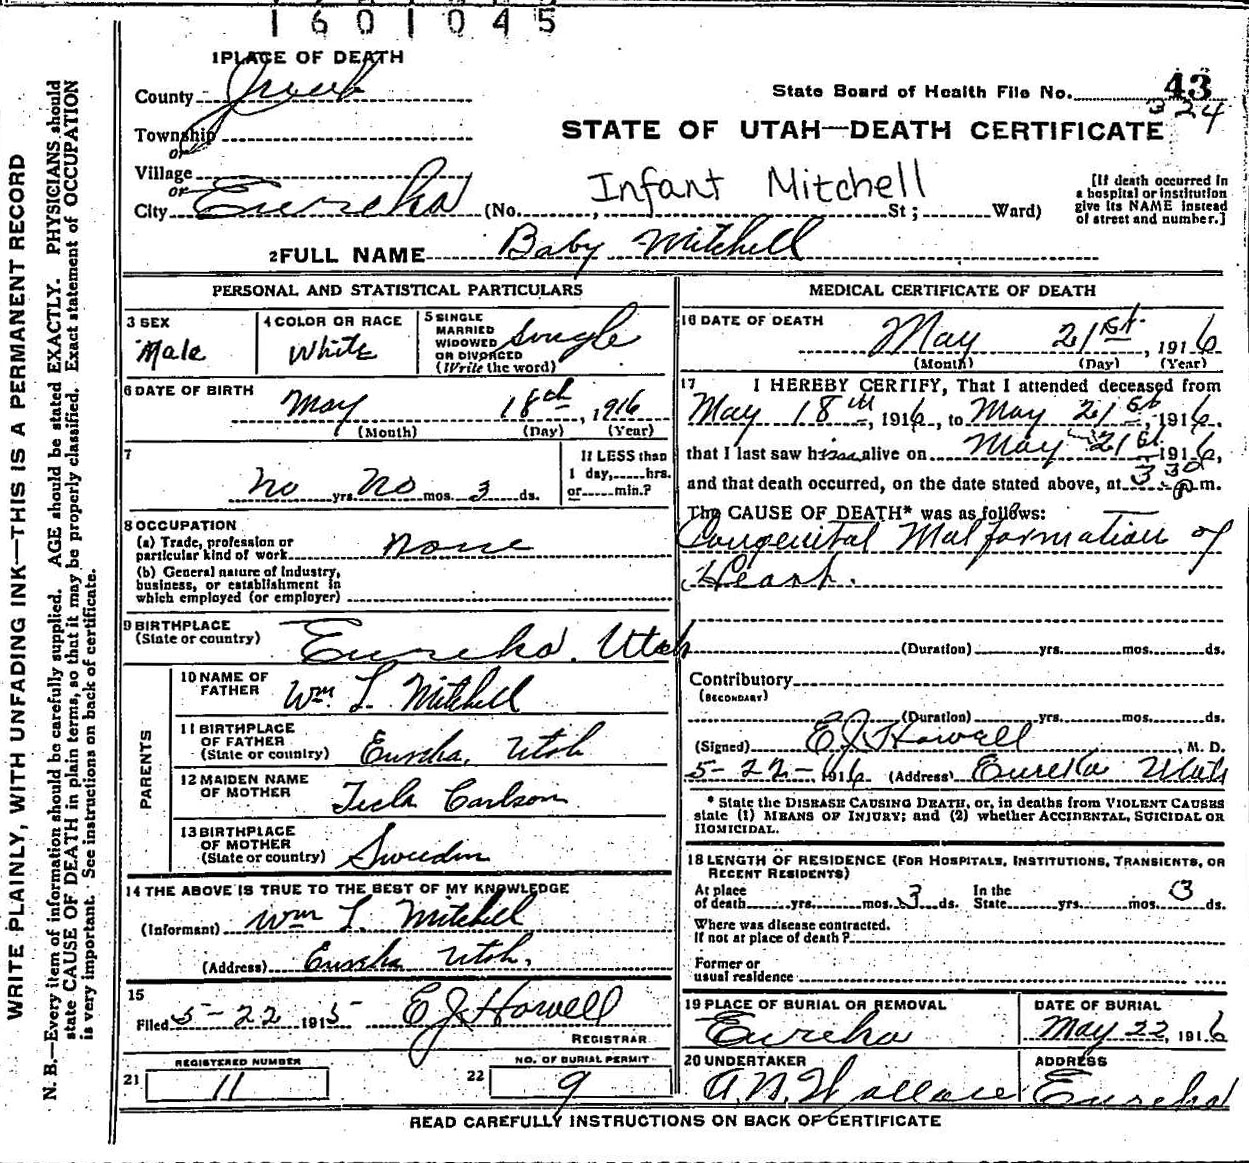 1601045
1 PLACE OF DEATH
County Juab
State Board of Health File No. 43
324
Township
or
STATE OF UTAH—DEATH CERTIFICATE
Village
or
City Eureka (No. , St; Ward)
Infant Mitchell
[If death occurred in
a hospital or institution
give its NAME instead
of street and number.]
2 FULL NAME Baby Mitchell
PERSONAL AND STATISTICAL PARTICULARS
3 SEX
Male
4 COLOR OR RACE
White
5 SINGLE
MARRIED
WIDOWED
OR DIVORCED
(Write the word)
Single
6 DATE OF BIRTH
May 18th, 1916
(Month) (Day) (Year)
7
no yrs. No mos. 3 ds.
If LESS than
1 day, hrs.
or min.?
8 OCCUPATION
(a) Trade, profession or
particular kind of work none
(b) General nature of Industry,
business, or establishment in
which employed (or employer)
9 BIRTHPLACE
(State or country) Eureka. Utah
PARENTS
10 NAME OF
FATHER Wm. L. Mitchell
11 BIRTHPLACE
OF FATHER
(State or country) Eureka, Utah
12 MAIDEN NAME
OF MOTHER Tecla Carlson
13 BIRTHPLACE
OF MOTHER
(State or country) Sweden
14 THE ABOVE IS TRUE TO THE BEST OF MY KNOWLEDGE
(Informant) Wm L. Mitchell
(Address) Eureka Utah.
15
Filed 5-22 1915 E J Howell
REGISTRAR
REGISTERED NUMBER
21 11
NO. OF BURIAL PERMIT
22 9
MEDICAL CERTIFICATE OF DEATH
16 DATE OF DEATH
May 21st, 1916
(Month) (Day) (Year)
17 I HEREBY CERTIFY, That I attended deceased from
May 18th, 1916, to May 21st, 1916,
that I last saw him alive on May 21st 1916,
and that death occurred, on the date stated above, at 3 30 P m.
The CAUSE OF DEATH* was as follows:
Congenital Malformation of
Heart.
(Duration) yrs. mos. ds.
Contributory
(SECONDARY)
(Duration) yrs. mos. ds.
(Signed) E.J. Howell, M. D.
5-22-1916 (Address) Eureka Utah
* State the DISEASE CAUSING DEATH, or, in deaths from VIOLENT CAUSES
state (1) MEANS OF INJURY; and (2) whether ACCIDENTAL, SUICIDAL OR
HOMICIDAL.
18 LENGTH OF RESIDENCE (FOR HOSPITALS, INSTITUTIONS, TRANSIENTS, OR
RECENT RESIDENTS)
At place
of death yrs. mos. 3 ds.
In the
State yrs. mos. 3 ds.
Where was disease contracted.
If not at place of death?
Former or
usual residence
19 PLACE OF BURIAL OR REMOVAL
Eureka
DATE OF BURIAL
May 22, 1916
20 UNDERTAKER
A. N. Wallace
ADDRESS
Eureka
READ CAREFULLY INSTRUCTIONS ON BACK OF CERTIFICATE
WRITE PLAINLY, WITH UNFADING INK—THIS IS A PERMANENT RECORD
N. B.—Every item of information should be carefully supplied. AGE should be stated EXACTLY. PHYSICIANS should
state CAUSE OF DEATH in plain terms, so that it may be properly classified. Exact statement of OCCUPATION
is very important. See instructions on back of certificate.